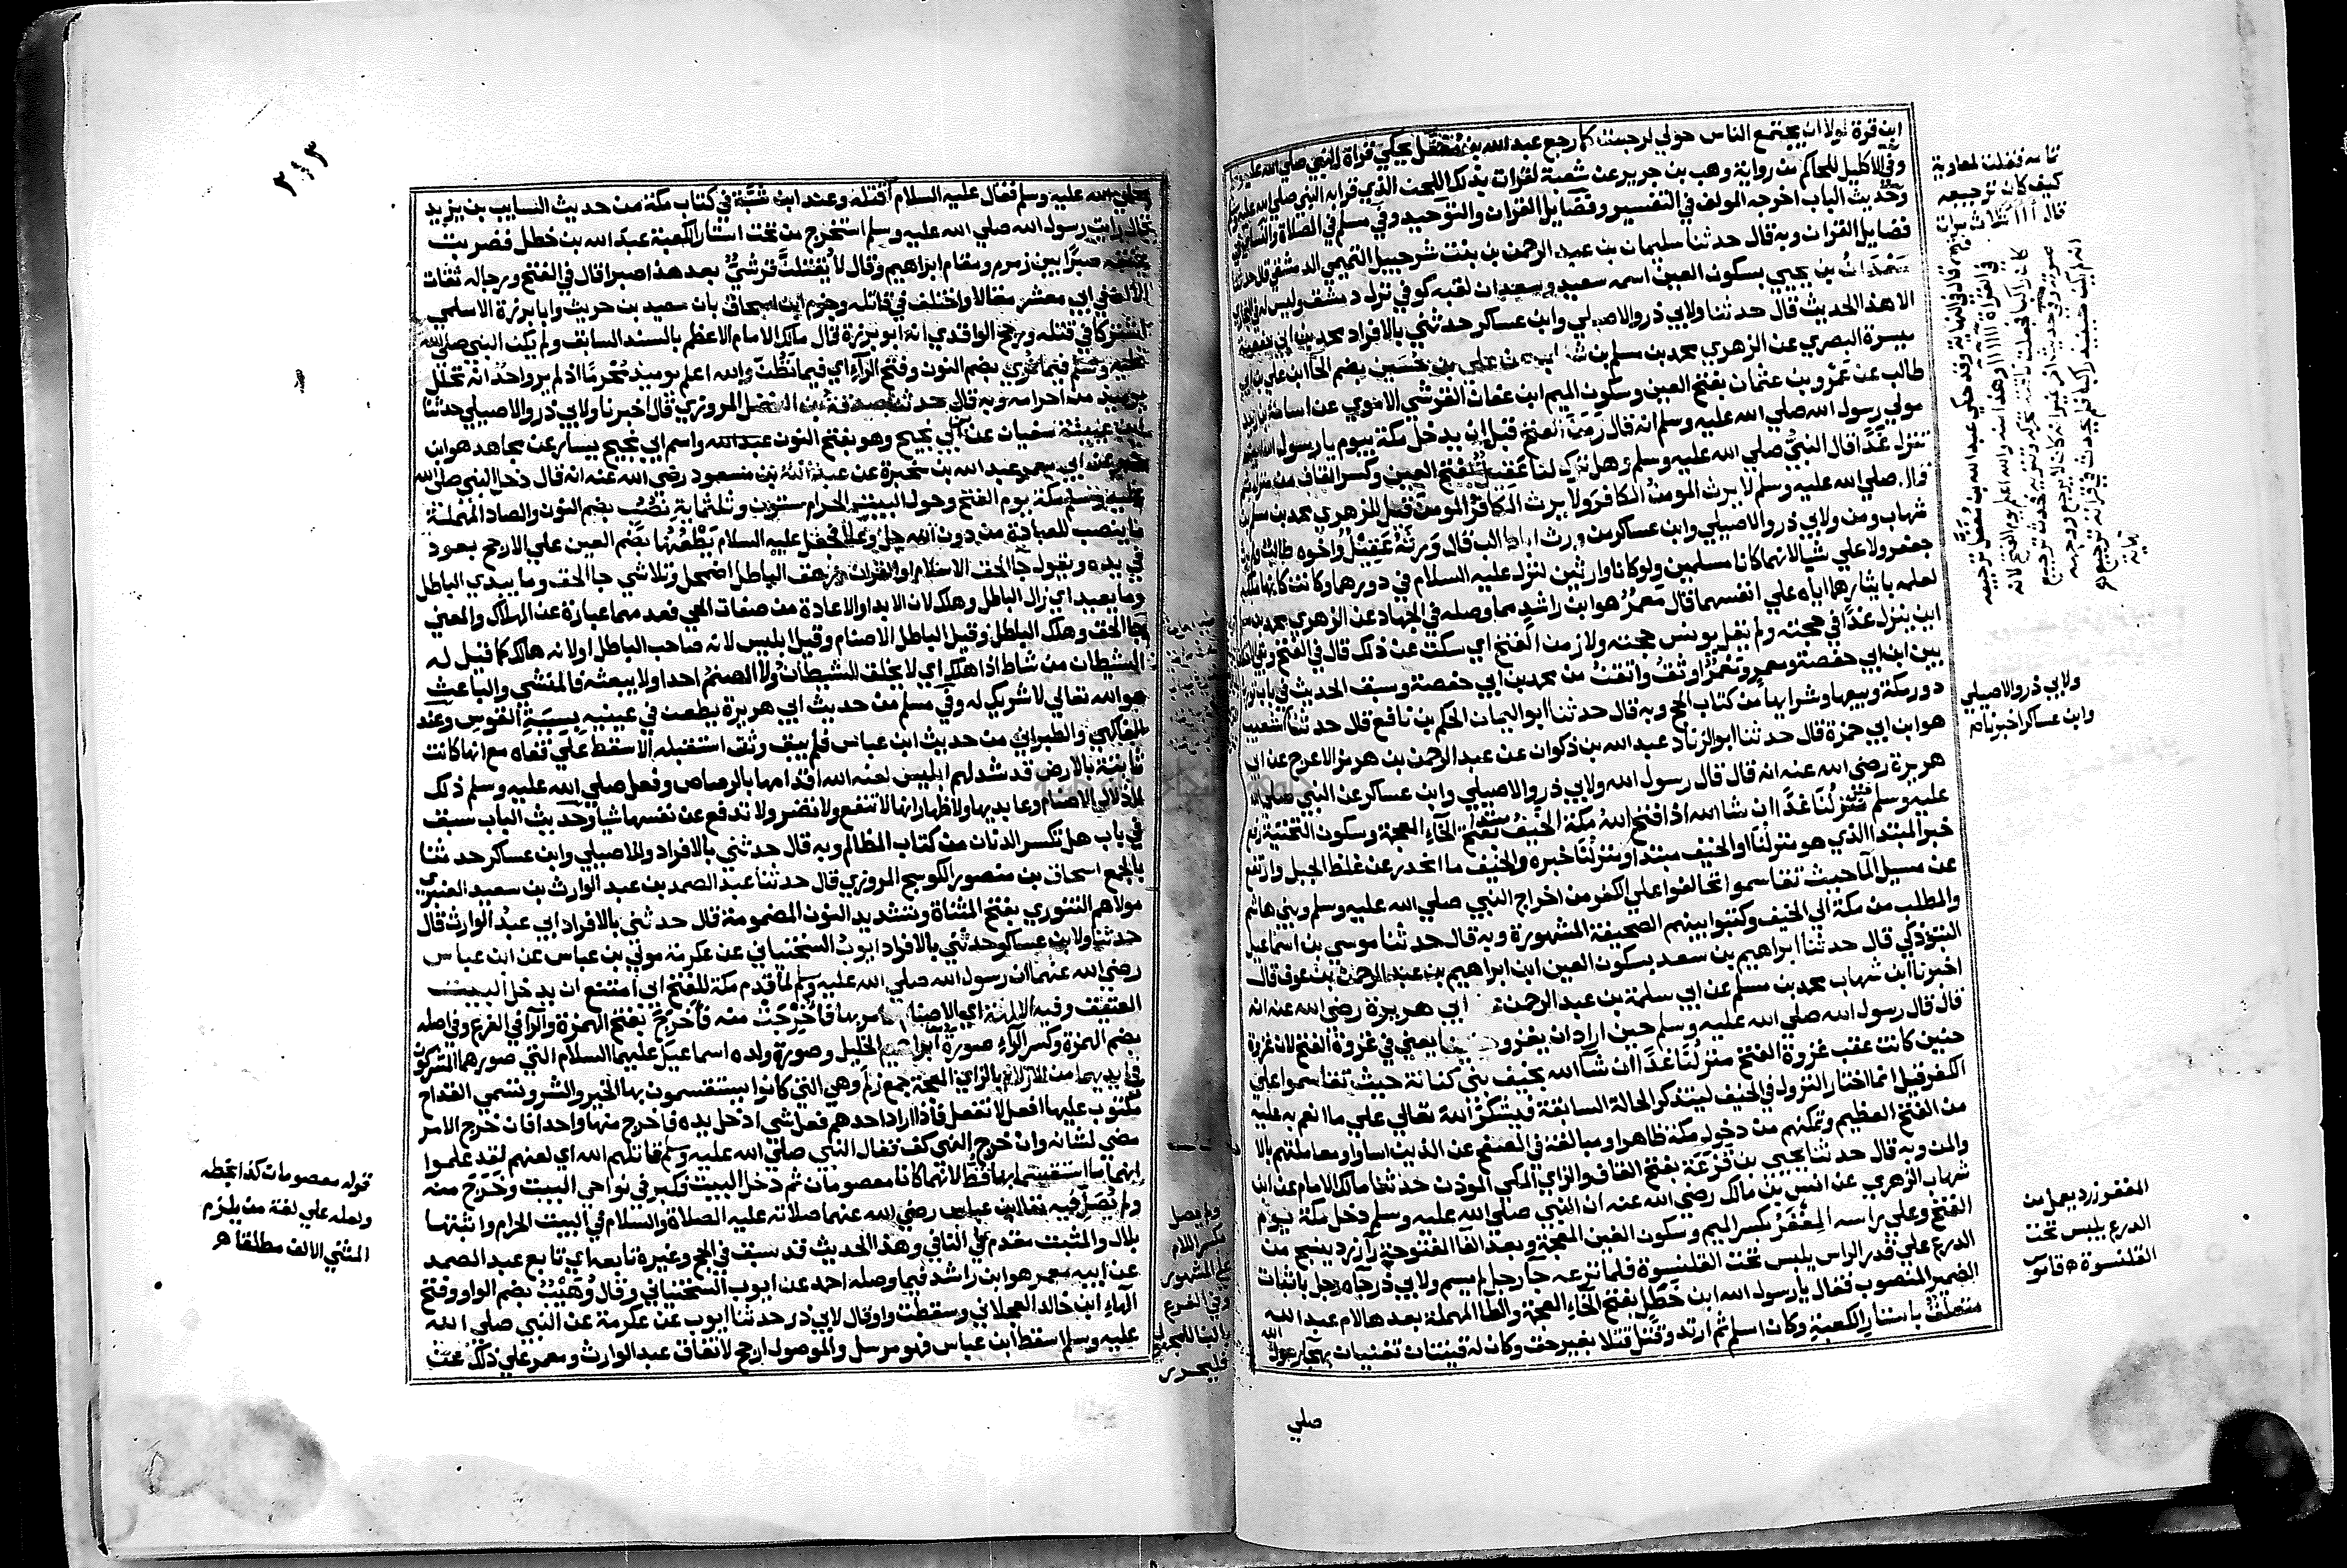 ابن قرة لولا ان يجتمع الناس حولي لرجعت كما رجع عبد الله بن مغفل يحكي قراة النبي صلي الله عليه وسلم
وفي الاكليل للحاكم من رواية وهب بن جرير عن شعبة لقرات بذلك اللحن الذي قرا به النبي صلي الله عليه وسلم
وحديث الباب اخرجه المولف في التفسير وفضايل القران والتوحيد وفي مسلم في الصلاة والنساي في
فضايل القران وبه قال حدثنا سليمان بن عبد الرحمن بن بنت شرحبيل التميمي الدمشقي قال حدثنا
سعدان بن يحيي بسكون العين اسمه سعيد وسعدان لقبه كوفي نزل دمشق وليس له في البخاري
الا هذا الحديث قال حدثنا ولابي ذر والاصيلي وابن عساكر حدثني بالافراد محمد بن ابي حفصة
ميسرة البصري عن الزهري محمد بن مسلم بن شهاب عن علي بن حسين بضم الحا ابن علي بن ابي
طالب عن عمرو بن عثمان بفتح العين وسكون الميم ابن عفان القرشي الاموي عن اسامة بن زيد
مولي رسول الله صلي الله عليه وسلم انه قال زمن الفتح قبل ان يدخل مكة بيوم يا رسول الله اين
تنزل غدا قال النبي صلي الله عليه وسلم وهل ترك لنا عقيل بفتح العين وكسر القاف من منزل ثم
قال صلي الله عليه وسلم لا يرث المومن الكافر ولا يرث الكافر المومن قيل للزهري محمد بن مسلم بن
شهاب ومن ولابي ذر والاصيلي وابن عساكر من ورث ابا طالب قال ورثه عقيل واخوه طالب ولم يرثه
جعفر ولا علي شيا لانهما كانا مسلمين ولو كانا وارثين لنزل عليه السلام في دورهما وكانت كانها ملكه
لعلمه بايثارهما اياه علي انفسهما قال معمر هو ابن راشد مما وصله في الجهاد عن الزهري محمد بن مسلم
اين ينزل غدا في حجته ولم يقل يونس حجته ولا زمن الفتح اي سكت عن ذلك قال في الفتح وبقي الاختلاف
بين ابن ابي حفصة ومعمر ومعمر اوثق واتقن من محمد بن ابي حفصة وسبق الحديث في باب توريث
دور مكة وبيعها وشرايها من كتاب الحج وبه قال حدثنا ابو اليمان الحكم بن نافع قال حدثنا شعيب
هو ابن ابي حمزة قال حدثنا ابو الزناد عبد الله بن ذكوان عن عبد الرحمن بن هرمز الاعرج عن ابي
هريرة رضي الله عنه انه قال قال رسول الله ولابي ذر والاصيلي وابن عساكر عن النبي صلي الله
عليه وسلم منزلنا غدا ان شا الله اذا افتح الله مكة الخيف بفتح الخاء المعجمة وسكون التحتية رفع
خبر المبتدا الذي هو منزلنا او الخيف مبتدا ومنزلنا خبره والخيف ما انحدر عن غلظ الجبل وارتفع
عن مسيل الما حيث تقاسموا تحالفوا علي الكفر من اخراج النبي صلي الله عليه وسلم وبني هاشم
والمطلب من مكة الي الخيف وكتبوا بينهم الصحيفة المشهورة وبه قال حدثنا موسي بن اسماعيل
التبوذكي قال حدثنا ابراهيم بن سعد بسكون العين ابن ابراهيم بن عبد الرحمن بن عوف قال
اخبرنا ابن شهاب محمد بن مسلم عن ابي سلمة بن عبد الرحمن ابي هريرة رضي الله عنه انه
قال قال رسول الله صلي الله عليه وسلم حين اراد ان يغزو حنينا يعني في غزوة الفتح لان غزوة
حنين كانت عقب غزوة الفتح منزلنا غدا ان شا الله بخيف بني كنانة حيث تقاسموا علي
الكفر قيل انما اختار النزول في الخيف ليتذكر الحالة السابقة فيشكر الله تعالي علي ما انعم به عليه
من الفتح العظيم وتمكنهم من دخول مكة ظاهرا ومبالغة في الصفح عن الذين اساوا ومعاملتهم بالا
والمن وبه قال حدثنا يحيي بن قزعة بفتح القاف والزاي المكي الموذن حدثنا مالك الامام عن ابن
شهاب الزهري عن انس بن مالك رضي الله عنه ان النبي صلي الله عليه وسلم دخل مكة يوم
الفتح وعلي راسه المغفر بكسر الميم وسكون الغين المعجمة وبعد الفا المفتوحة را زرد ينسج من
الدرع علي قدر الراس يلبس تحت القلنسوة فلما نزعه جا رجل لم يسم ولابي ذر جاه رجل باثبات
الضمير المنصوب فقال يا رسول الله ابن خطل بفتح الخاء المعجمة والطا المهملة بعدها لام عبد الله
متعلق باستار الكعبة وكان اسلم ثم ارتد وقتل قتلا بغير حق وكان له قينتان تغنيان بهجا رسول الله
صلي
ولابي ذر والاصيلي
وابن عساكر اخبرنا
المغفر زرد يعمل من
الدرع يلبس تحت
القلنسوة
صلي الله عليه وسلم فقال عليه السلام اقتله وعند ابن شبة في كتاب مكة من حديث السايب بن يزيد
قال رايت رسول الله صلي الله عليه وسلم استخرج من تحت استار الكعبة عبد الله بن خطل فضربت
عنقه صبرا بين زمزم ومقام ابراهيم وقال لا يقتلن قرشي بعد هذا صبرا قال في الفتح ورجاله ثقات
الا ان في ابي معشر مقالا واختلف في قاتله وجزم ابن اسحاق بان سعيد بن حريث وابا برزة الاسلمي
اشتركا في قتله ورجح الواقدي انه ابو برزة قال مالك الامام الاعظم بالسند السابق ولم يكن النبي صلي الله
عليه وسلم فيما نري بضم النون وفتح الرآء اي فيما نظن والله اعلم يوميذ محرما اذ لم يرو احد انه تحلل
يوميذ من احرامه وبه قال حدثنا صدقة بن الفضل المروزي قال اخبرنا ولابي ذر والاصيلي حدثنا
ابن عيينة سفيان عن ابن ابي نجيح وهو بفتح النون عبد الله واسم ابي نجيح يسار عن مجاهد هو ابن
جبر عن ابي معمر عبد الله بن سخبرة عن عبد الله بن مسعود رضي الله عنه انه قال دخل النبي صلي الله
عليه وسلم مكة يوم الفتح وحول البيت الحرام ستون وثلثماية نصب بضم النون والصاد المهملة
ما ينصب للعبادة من دون الله جل وعلا فجعل عليه السلام يطعنها بضم العين علي الارجح بعود
في يده ويقول جا الحق الاسلام او القران وزهق الباطل اضمحل وتلاشي جا الحق وما يبدي الباطل
وما يعيد اي زال الباطل وهلك لان الابدا والاعادة من صفات الحي فعدمهما عبارة عن الهلاك والمعني
جا الحق وهلك الباطل وقيل الباطل الاصنام وقيل ابليس لانه صاحب الباطل او لانه هالك كما قيل له
الشيطان من شاط اذا هلك اي لا يخلق الشيطان ولا الصنم احدا ولا يبعثه فالمنشي والباعث
هو الله تعالي لا شريك له وفي مسلم من حديث ابي هريرة يطعن في عينيه بسية القوس وعند
الفاكهي والطبراني من حديث ابن عباس فلم يبق وثن استقبله الا سقط علي قفاه مع انها كانت
ثابتة بالارض قد شد لهم ابليس لعنه الله اقدامها بالرصاص وفعل صلي الله عليه وسلم ذلك
لاذلال الاصنام وعابديها ولاظهار انها لا تنفع ولا تضر ولا تدفع عن نفسها شيا وحديث الباب سبق
في باب هل تكسر الدنان من كتاب المظالم وبه قال حدثني بالافراد والاصيلي وابن عساكر حدثنا
بالجمع اسحاق بن منصور الكوسج المروزي قال حدثنا عبد الصمد بن عبد الوارث بن سعيد العنبري
مولاهم التنوري بفتح المثناة وتشديد النون المضمومة قال حدثني بالافراد ابي عبد الوارث قال
حدثنا ولابن عساكر حدثني بالافراد ايوب السختياني عن عكرمة مولي بن عباس عن ابن عباس
رضي الله عنهما ان رسول الله صلي الله عليه وسلم لما قدم مكة للفتح ابي امتنع ان يدخل البيت
العتيق وفيه الالهة اي الاصنام فامر بها فاخرجت منه فاخرج بفتح الهمزة والرا في الفرع وفي اصله
بضم الهمزة وكسر الراء صورة ابراهيم الخليل وصورة ولده اسماعيل عليهما السلام التي صورهما المشركون
في ايديهما من الازلام بالزاي المعجمة جمع زلم وهي التي كانوا يستقسمون بها الخير والشر وتسمي القداح
مكتوب عليها افعل لا تفعل فاذا اراد احدهم فعل شي ادخل يده فاخرج منها واحدا فان خرج الامر
مضي لشانه وان خرج النهي كف فقال النبي صلي الله عليه وسلم قاتلهم الله اي لعنهم لقد علموا
انهما ما استقسما بها قط لانهما كانا معصومان ثم دخل البيت فكبر في نواحي البيت وخرج منه
ولم يصل فيه نفا ابن عباس رضي الله عنهما صلاته عليه الصلاة والسلام في البيت الحرام واثبتها
بلال والمثبت مقدم علي النافي وهذا الحديث قد سبق في الحج وغيره تابعه اي تابع عبد الصمد
عن ابيه معمر هو ابن راشد فيما وصله احمد عن ايوب السختياني وقال وهيب بضم الواو وفتح
الهاء ابن خالد العجلاني وسقطت واو قال لابي ذر حدثنا ايوب عن عكرمة عن النبي صلي الله
عليه وسلم اسقط ابن عباس فهو مرسل والموصول ارجح لاتفاق عبد الوارث ومعمر علي ذلك عن
قوله معصومان كذا بخطه
ولعله علي لغة من يلزم
المثني الالف مطلقا هـ